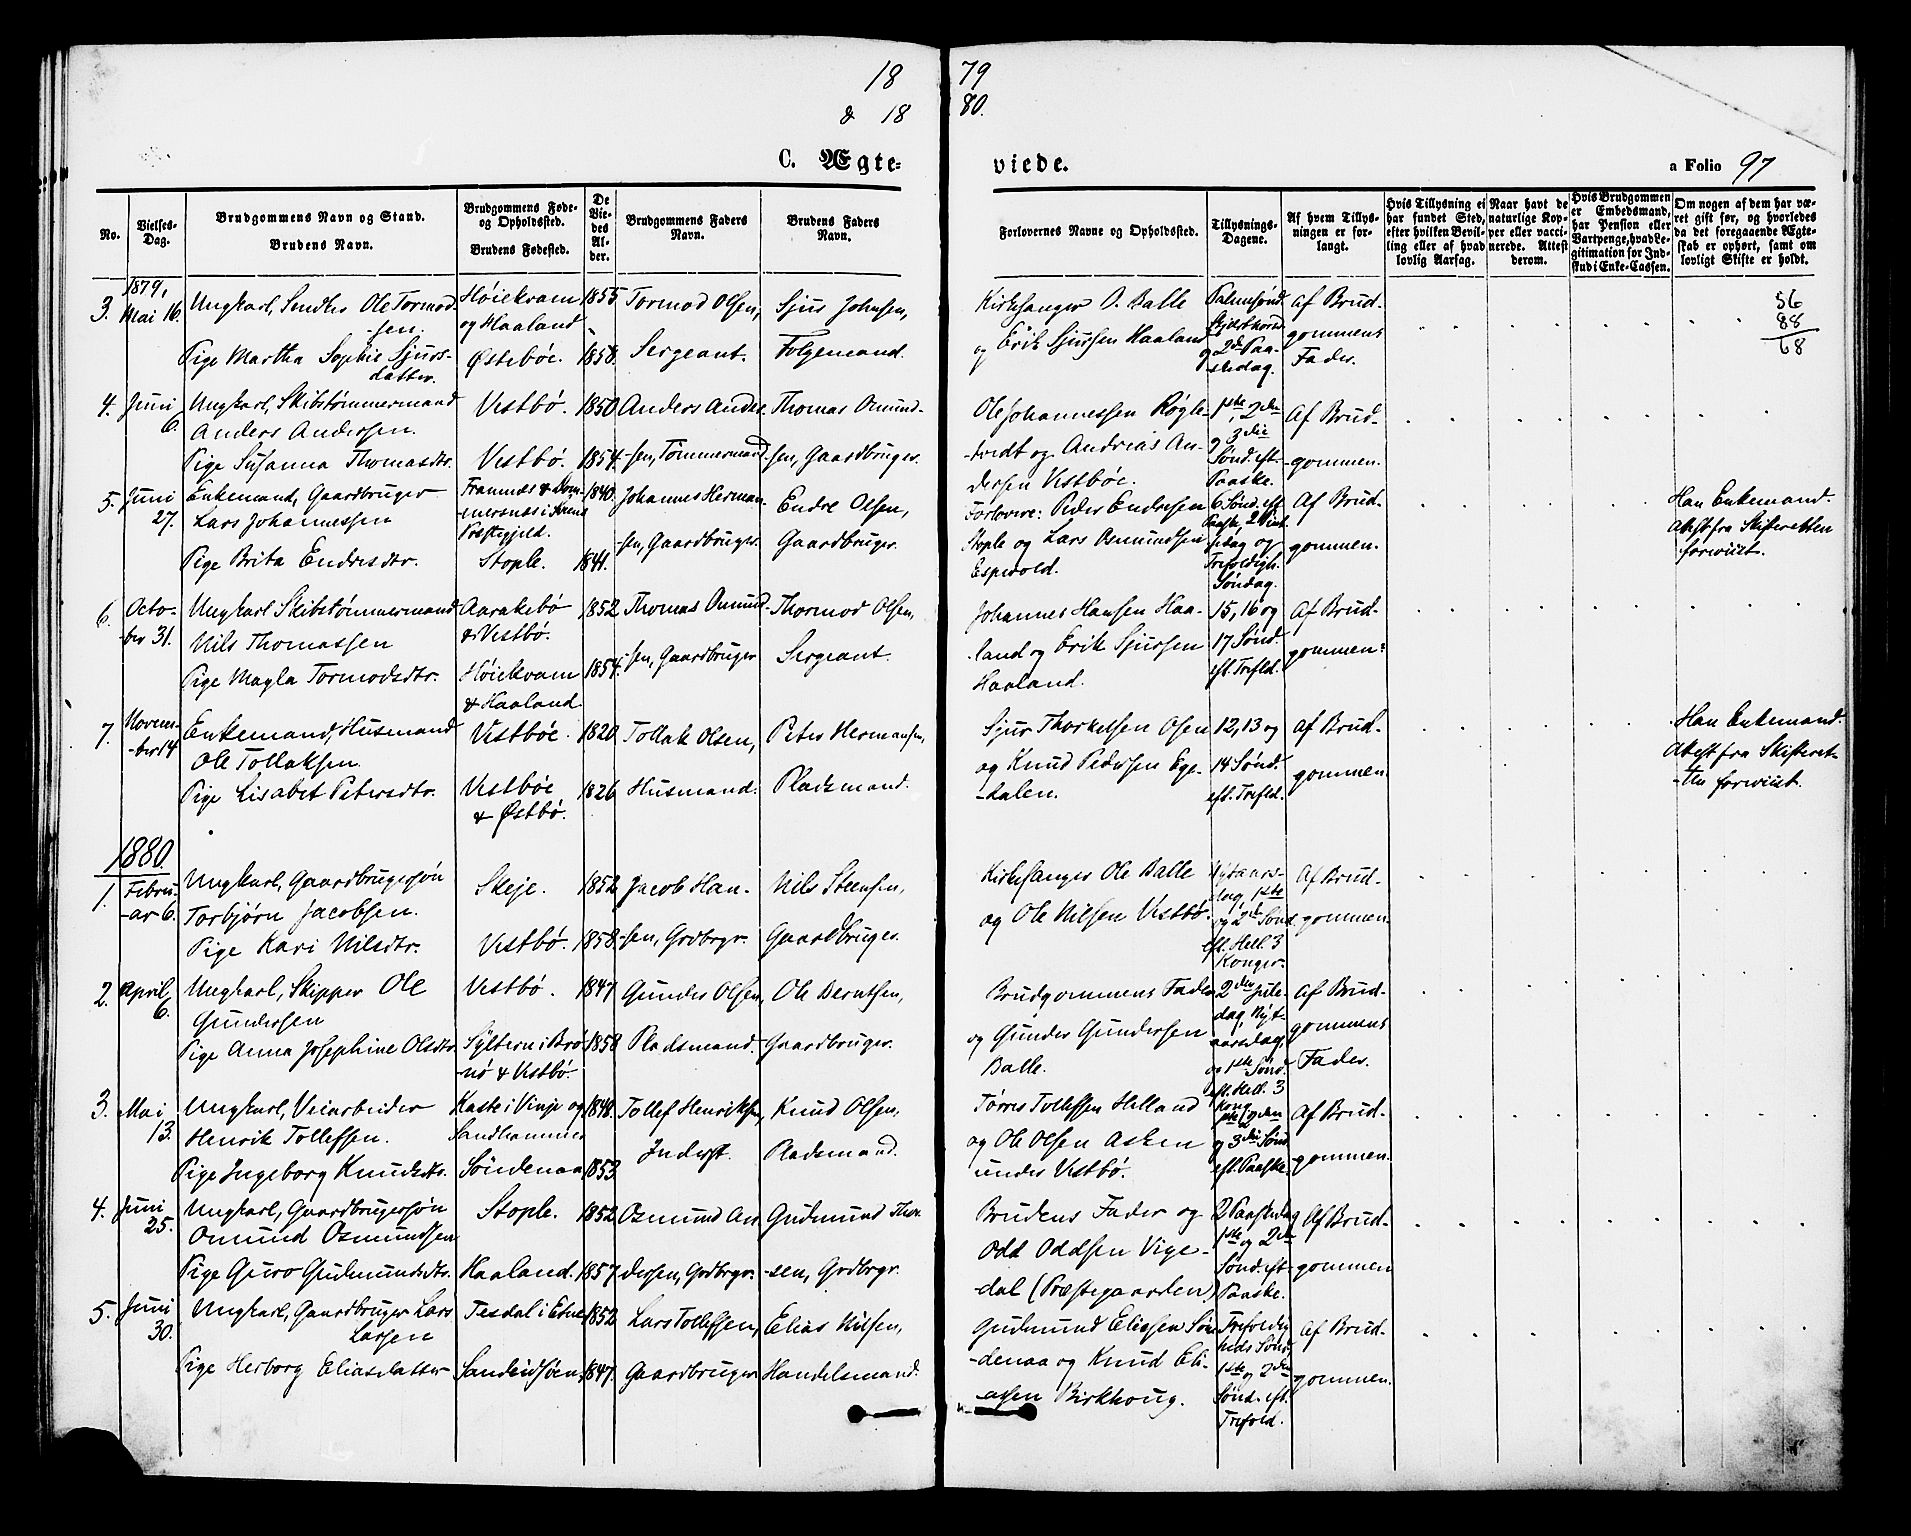 18 79
& 18 80.
C. Ægte-
viede.
a Folio 97
No.
Vielses-
Dag.
Brudgommens Navn og Stand.
Brudens Navn.
Brudgommens Føde-
og Opholdssted.
Brudens Fødested.
De
Vie-
des
Al-
der.
Brudgommens Faders
Navn.
Brudens Faders
Navn.
Forlovernes Navne og Opholdssted.
Tillysnings-
Dagene.
Af hvem Tillys-
ningen er for-
langt.
Hvis Tillysning ei
har fundet Sted,
efter hvilken Bevil-
ling eller af hvad
lovlig Aarsag.
Naar havt de
naturlige Kop-
per eller vacci-
nerede. Attest
derom.
Hvis Brudgommen
er Embedsmand,
har Pension eller
Vartpenge, hvad Le-
gitimation for Ind-
skud i Enke-Cassen.
Om nogen af dem har væ-
ret gift før, og hvorledes
da det foregaaende Ægte-
skab er ophørt, samt om
lovligt Skifte er holdt.
1879,
3. Mai 16.
Ungkarl, Snedker Ole Tormod-
sen.
Pige Martha Sophie Sjurs-
datter.
Høiekvam
og Haaland
Østebøe.
1855
1858.
Tormod Olsen,
Sergeant.
Sjur Johnsen,
Folgemand.
Kirkesanger O. Balle
og Erik Sjursen Haaland
Palmesønd.
Skjærthorsd.
og 2den Paa-
skedag.
Af Brud-
gommens
Fader.
56
88
68
4. Juni
6.
Ungkarl, Skibstømmermand
Anders Andersen.
Pige Susanna Thomasdtr.
Vestbø.
Vestbø.
1850
1854
Anders Anders-
sen, Tømmermand
Thomas Omund-
sen, Gaardbruger.
Ole Johannessen Røgle-
tvedt og Andreas An-
dersen Vestbøe.
1ste, 2den
og 3die
Sønd. eft.
Paaske.
Af Brud-
gommen.
5. Juni
27.
Enkemand, Gaardbruger
Lars Johannessen
Pige Brita Endresdtr.
Præstegjeld.
Stople.
1840
1841.
Johannes Herman-
sen, Gaardbruger.
Endre Olsen,
Gaardbruger.
Forlovere: Peder Endresen
Stople og Lars Osmundsen
Espevold.
6 Sønd. eft.
Paaske, 2 Pint-
sedag og
Trefoldigh.
Søndag.
Af Brud-
gommen.
Han Enkemand.
Attest fra Skifteretten
foreviist.
6. Octo-
ber 31.
Ungkarl Skibstømmermand
Nils Thomassen
Pige Magla Tormodsdtr.
Aarakebø
& Vestbø.
Høiekvam
& Haaland.
1852
1854.
Thomas Omund-
sen, Gaardbruger
Thormod Olsen,
Sergeant.
Johannes Hansen Haa-
land og Erik Sjursen
Haaland.
15, 16 og
17 Sønd.
eft. Trefld.
Af Brud-
gommen.
7. Novem-
ber 14.
Enkemand, Husmand
Ole Tollaksen.
Pige Lisabet Petersdtr.
Vestbøe.
Vestbøe
& Østbø.
1820
1826
Tollak Olsen,
Husmand.
Peter Hermansen,
Pladsmand.
Sjur Thorkelsen Osen
og Knud Pedersen Ege-
dalen.
12, 13 og
14 Sønd.
eft. Trefld.
Af Brud-
gommen.
Han Enkemand.
Attest fra Skifteret-
ten foreviist.
1880.
1. Febru-
ar 6.
Ungkarl, Gaardbrugersøn
Torbjørn Jacobsen.
Pige Kari Nilsdtr.
Skeje.
Vestbø.
1852
1858
Jacob Han-
sen, Grdbrgr.
Nils Steensen,
Gaardbruger.
Kirkesanger Ole Balle
og Ole Nilsen Vestbø.
Nytaars-
dag, 1ste
og 2den Sønd.
eft. Hell. 3
Konger.
Af Brud-
gommen.
2. April
6.
Ungkarl, Skipper Ole
Gundersen
Pige Anna Josephine Olsdtr.
Vestbø.
Syltern i Brø-
nø & Vestbø.
1847
1858
Gunder Olsen,
Pladsmand.
Ole Berntsen,
Gaardbruger.
Brudgommens Fader
og Gunder Gundersen
Balle.
2den Jule-
dag, Nyt-
aarsdag,
og 1ste Sønd.
eft. Hell. 3
Kong.
Af Brud-
gommens
Fader.
3. Mai
13.
Ungkarl, Veiarbeider
Henrik Tollefsen.
Pige Ingeborg Knudsdtr.
Kaste i Vinje og
Sandhammer
Søndenaa
1848.
1853.
Tollef Henriksen,
Inderst.
Knud Olsen,
Pladsmand.
Tørres Tollefsen Helland
og Ole Olsen Asken
under Vestbø.
1ste, 2den
og 3die Sønd.
eft. Paaske.
Af Brud-
gommen.
4. Juni
25.
Ungkarl, Gaardbrugersøn
Omund Osmundsen
Pige Guro Gudmundsdtr.
Stople.
Haaland.
1852
1857
Osmund An-
dersen, Grdbrgr.
Gudmund Thor-
sen, Grdbrgr.
Brudens Fader og
Odd Oddsen Vige-
dal (Præstegaarden)
2 Paaskedag
1ste og 2den
Sønd. eft.
Paaske.
Af Brud-
gommen
5. Juni
30.
Ungkarl, Gaardbruger Lars
Larsen
Pige Herborg Eliasdatter
Tesdal i Etne
Sandeidsøen
1852
1847.
Lars Tollefsen,
Gaardbruger
Elias Nilsen,
Handelsmand.
Gudmund Eliassen Søn-
denaa og Knud Eli-
assen Birkhoug.
Trefoldig-
heds Sønd.,
1ste og 2den
Sønd. eft.
Trefold.
Af Brud-
gommen.